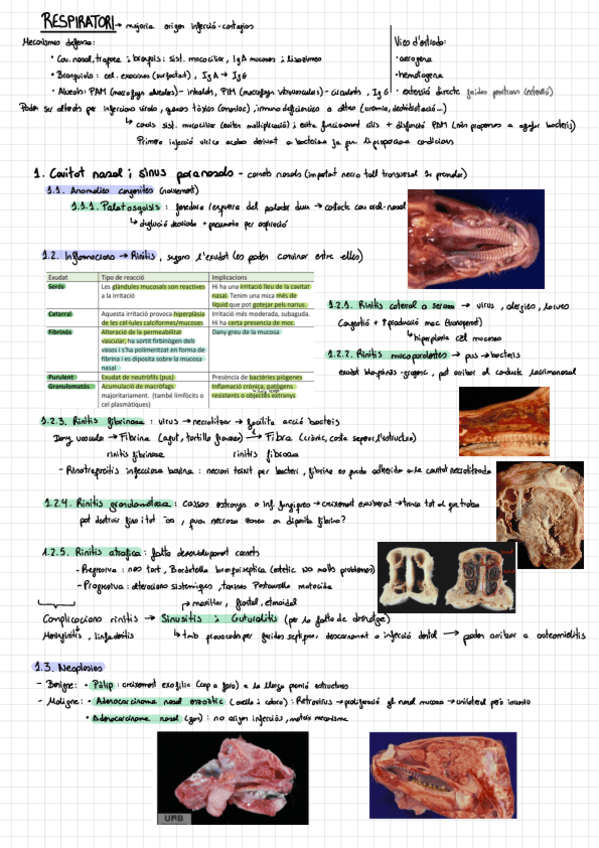 RESPIRATORI → majoria origen infecció-contagios
Mecanismes defensa:
Vies d'entrada:
• Cav. nasal, traquea i bronquis: sist. mucociliar, IgA mucoses i lisozimes
• aerogena
• Bronquiols: cel. exocrines (surfactat), IgA → IgG
• hematogena
• Alveols: PAM (macrofags alveolars) - inhalats, PIM (macrofags intravasculars) - circulants, IgG
• extensió directe
Poden ser alterats per infeccions virals, gasos tòxics (amoniac), immunodeficiencies o altres (uremia, deshidratació...)
Primera infecció vírica acaba derivant a bacteriana ja que li proporciona condicions
1. Cavitat nasal i sinus paranasals - cornets nasals (important necro tall transversal 1r premolar)
1.1. Anomalies congenites (naixement)
1.1.1. Palatosquisi: fenedura/esquerra del paladar dur → contacte cav. oral-nasal
deglució desviada + pneumonia per aspiració
1.2. Inflamacions → Rinitis, segons l'exudat (es poden canviar entre elles)
Exudat Tipo de reacció Implicacions
Serós Les glàndules mucosals son reactives a la irritació Hi ha una irritació lleu de la cavitat nasal. Tenim una mica més de líquid que pot gotejar pels narius.
Catarral Aquesta irritació provoca hiperplàsia de les cèl·lules calciformes/mucoses Irritació més moderada, subaguda. Hi ha certa presencia de moc.
Fibrinós Alteració de la permeabilitat vascular, ha sortit firbinògen dels vasos i s'ha polimeritzat en forma de fibrina i es diposita sobre la mucosa nasal Dany greu de la mucosa
Purulent Exudat de neutròfils (pus) Presència de bactèries piògenes
Granulomatós Acumulació de macròfags majoritariament. (també limfòcits o cel plasmàtiques) Inflamació crònica, patògens resistents o objectes extranys
1.2.1. Rinitis cataral o serosa → virus, alergies, larves
Congestió + ↑ producció moc (transparent)
hiperplasia cel mucoses
1.2.2. Rinitis mocopurulentes → pus → bacteris
exudat blanquinós-grogenc, pot arribar al conducte lacrimonasal
1.2.3. Rinitis fibrinosa: virus → necrotitzar → facilita acció bacteris
Dany vascular → Fibrina → Fibra (crònic, costa separar l'estructura)
rinitis fibrinosa rinitis fibrosa
- Rinotraqueitis infecciosa bovina: necrosi teixit per bacteri, fibrina es queda adherida a la cavitat necrotitzada
1.2.4. Rinitis granulomatosa: cossos estranys o inf. fungiques → creixement exuberant → trenca tot el que troba
pot destruir fins i tot os, quan necrosa zones on diposita fibrina?
1.2.5. Rinitis atrofica: falta desenvolupament cornets
- Regresiva: neo tort, Bordetella bronquiseptica (estetic no molts problemes)
- Progresiva: alteracions sistemiques, toxines Pasteurella multocida
maxillar, frontal, etmoidal
Complicacions rinitis → Sinusitis i Guturalitis (per la falta de drenatge)
Meningitis, linfadenitis
tmb provocada per ferides septiques, descornament o infecció dental → poden arribar a osteomielitis
1.3. Neoplasies
- Benigne: • Pòlip: creixement exofitic (cap a fora) a la llarga premia estructures
- Maligne: • Adenocarcinoma nasal enzoòtic (ovella i cabra): Retrovirus → proliferació gl nasal mucosa → unilateral però invasiu
• Adenocarcinoma nasal (gos): no origen infecciós, mateix mecanisme
UAB